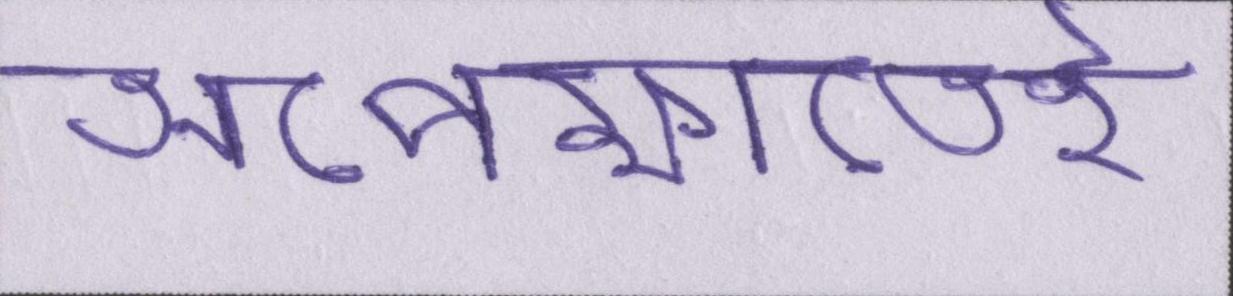 অপেক্ষাতেই